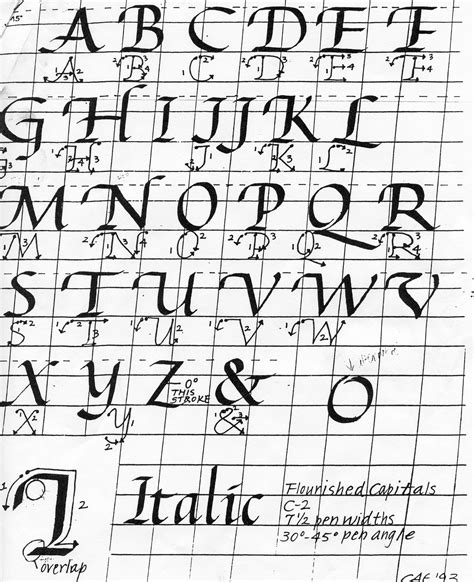 15°
A B C D E F
A B C D E F
G H I J J K L
H J K L
M N O P Q R
M N O P Q R
S T U V W V
S T U V W
X Y Z & O
0°
THIS
STROKE
X Y &
I Italic
1 2
Flourished Capitals
C-2
7 1/2 pen widths
30°-45° pen angle
overlap
CAE '93